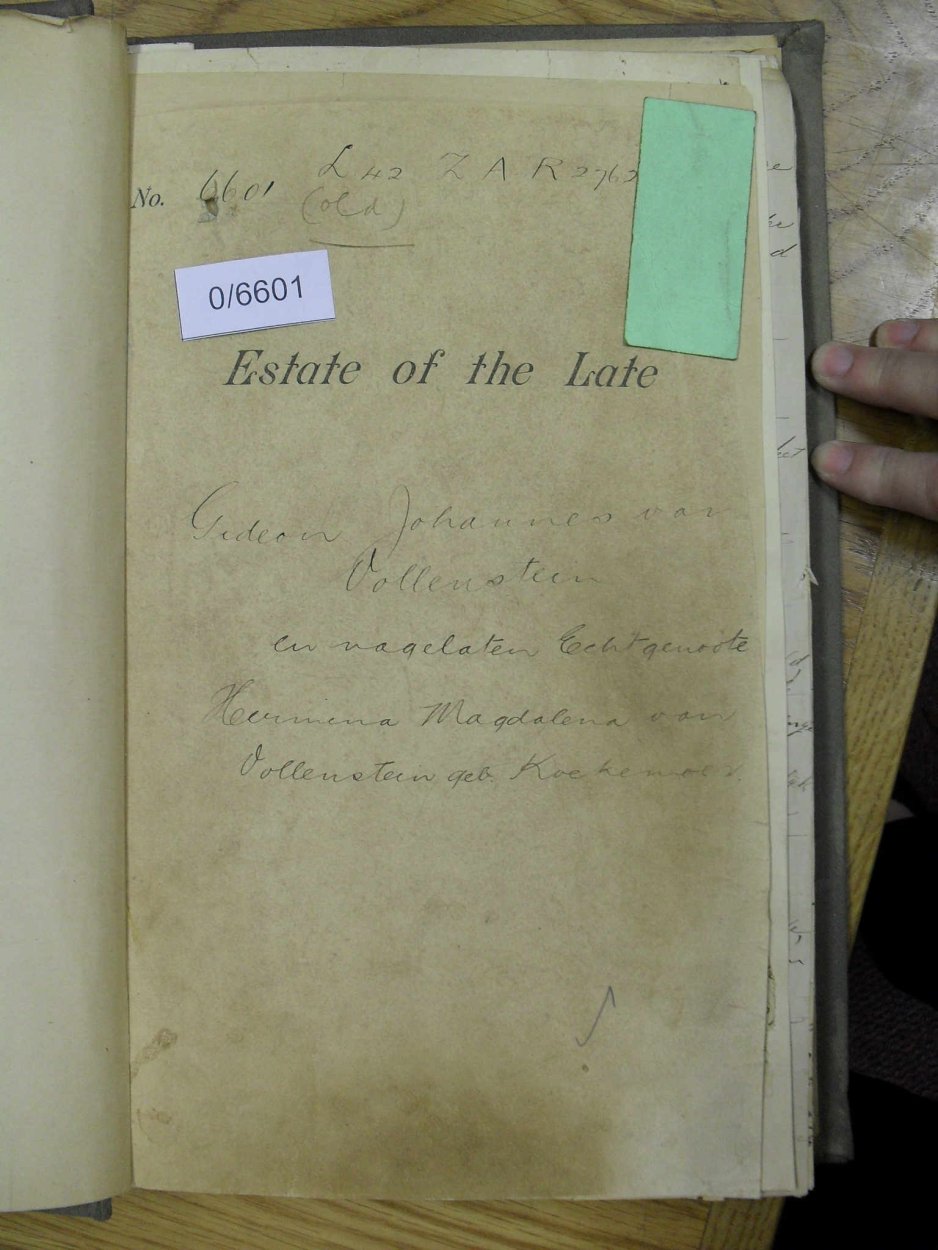 No. 6601 L 42 Z A R 2762
(old)
0/6601
Estate of the Late
Gideon Johannes van
Vollenstein
en nagelaten Echtgenoote
Hermina Magdalena van
Vollenstein geb. Koekemoer.